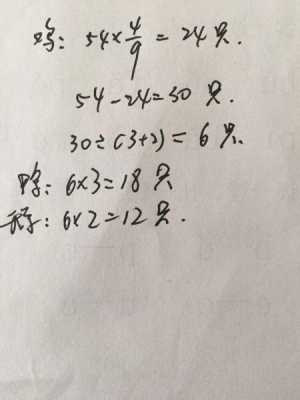 鸡：54×4/9=24只.
54-24=30只.
30÷(3+2)=6只.
鸭：6×3=18只
鹅：6×2=12只.